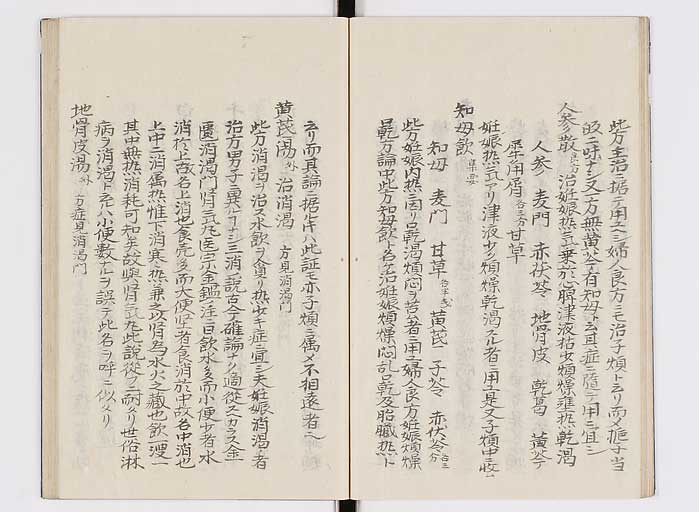 此方主治ニ據テ用ユヘシ婦人良方ニモ治子煩ト云リ而〆梔子当
皈ニ味ナシ又一方無黄芩有知母ト云其症ニ隨テ用ユ宜シ
人参散 良方 治妊娠热気乗於心脾津液枯少煩燥壅热乾渇
人参 麦門 赤茯苓 地骨皮 乾葛 黄芩
犀角屑 各三方 甘草
妊娠热気アリ津液少ク煩燥乾渇スル者ニ用ユ是又子煩中ニ收ム
知母飲 集要
知母 麦門 甘草 各半戋 黄芪 子芩 赤茯苓 各三分
此方妊娠内热ニ因リ口乾渇煩悶ヲ苦ム者ニ用ユ婦人良方妊娠煩燥
口乾方論中此方知母飲ト名ク治妊娠煩燥悶乱口乾及胎臓热ト
云リ而其論ニ據ル寸ハ此証モ亦子煩ニ属〆不相遠者也
黄芪湯 外 治消渇 方見消渇門
此方消渇ヲ治ス水飲ヲ貪リ热少キ症ニ宜シ夫妊娠消渇ノ者
治方男子ニ異ルコナシ三消ノ説古今確論ナク適從スヘカラス金
匱消渇門腎気丸医宗金鑑ノ注ニ曰飲水多而小便少者水
消於上故名上消也食穀多而大便堅者食消於中故名中消也
上中二消属热惟下消寒热兼之以腎為水火之藏也飲一溲一
其中無热消耗可知矣故與腎気丸此説從フニ耐タリ世俗淋
病ヲ消渇ト云ハ小便數ナルヲ誤テ此名ヲ呼ニ似タリ
地骨皮湯 外 方症見消渇門